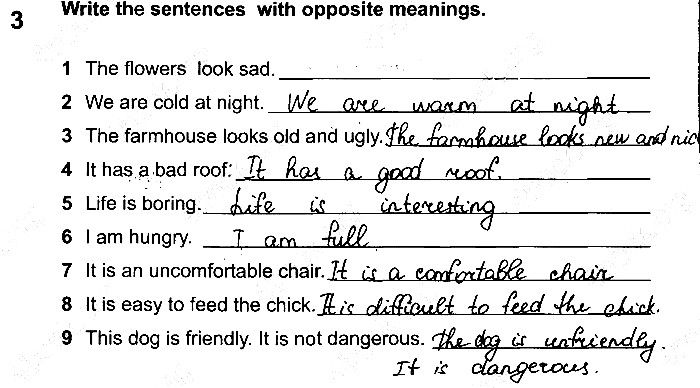 3 Write the sentences with opposite meanings.
1 The flowers look sad.
2 We are cold at night. We are warm at night
3 The farmhouse looks old and ugly. The farmhouse looks new and nic
4 It has a bad roof: It has a good roof.
5 Life is boring. Life is interesting
6 I am hungry. I am full
7 It is an uncomfortable chair. It is a comfortable chair
8 It is easy to feed the chick. It is difficult to feed the chick.
9 This dog is friendly. It is not dangerous. The dog is unfriendly.
It is dangerous.